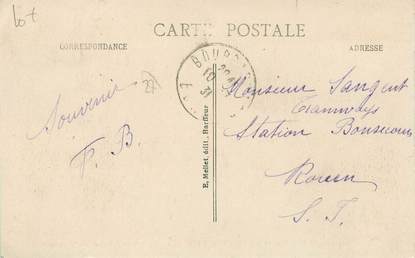 lot
CARTE POSTALE
CORRESPONDANCE
ADRESSE
Souvenir
F. B.
E. Mellet, édit. Harfleur
Monsieur Sangent
Tramways
Station Bonsecours
Rouen
S. I.